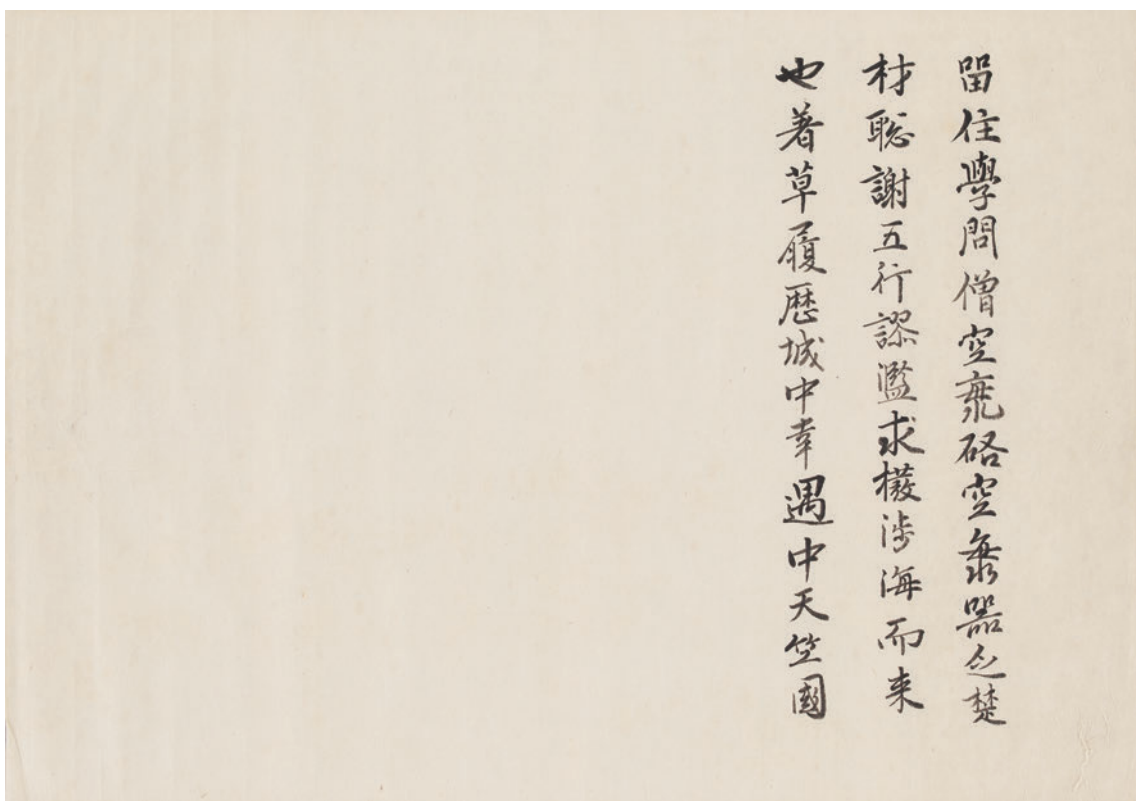 留住學問僧空海啓空海器乏楚
材聡謝五行謬濫求撥渉海而来
也着草履歴城中幸遇中天竺國